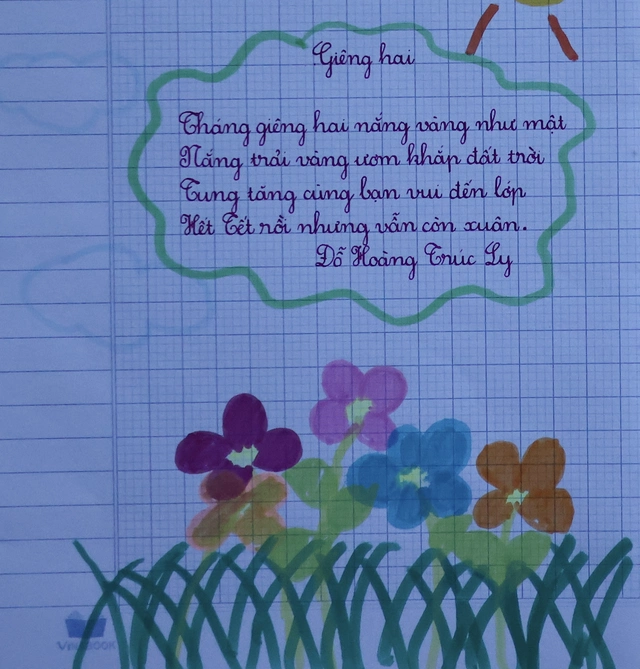 Giêng hai
Tháng giêng hai nắng vàng như mật
Nắng trải vàng ươm khắp đất trời
Tung tăng cùng bạn vui đến lớp
Hết Tết rồi nhưng vẫn còn xuân.
Đỗ Hoàng Trúc Ly